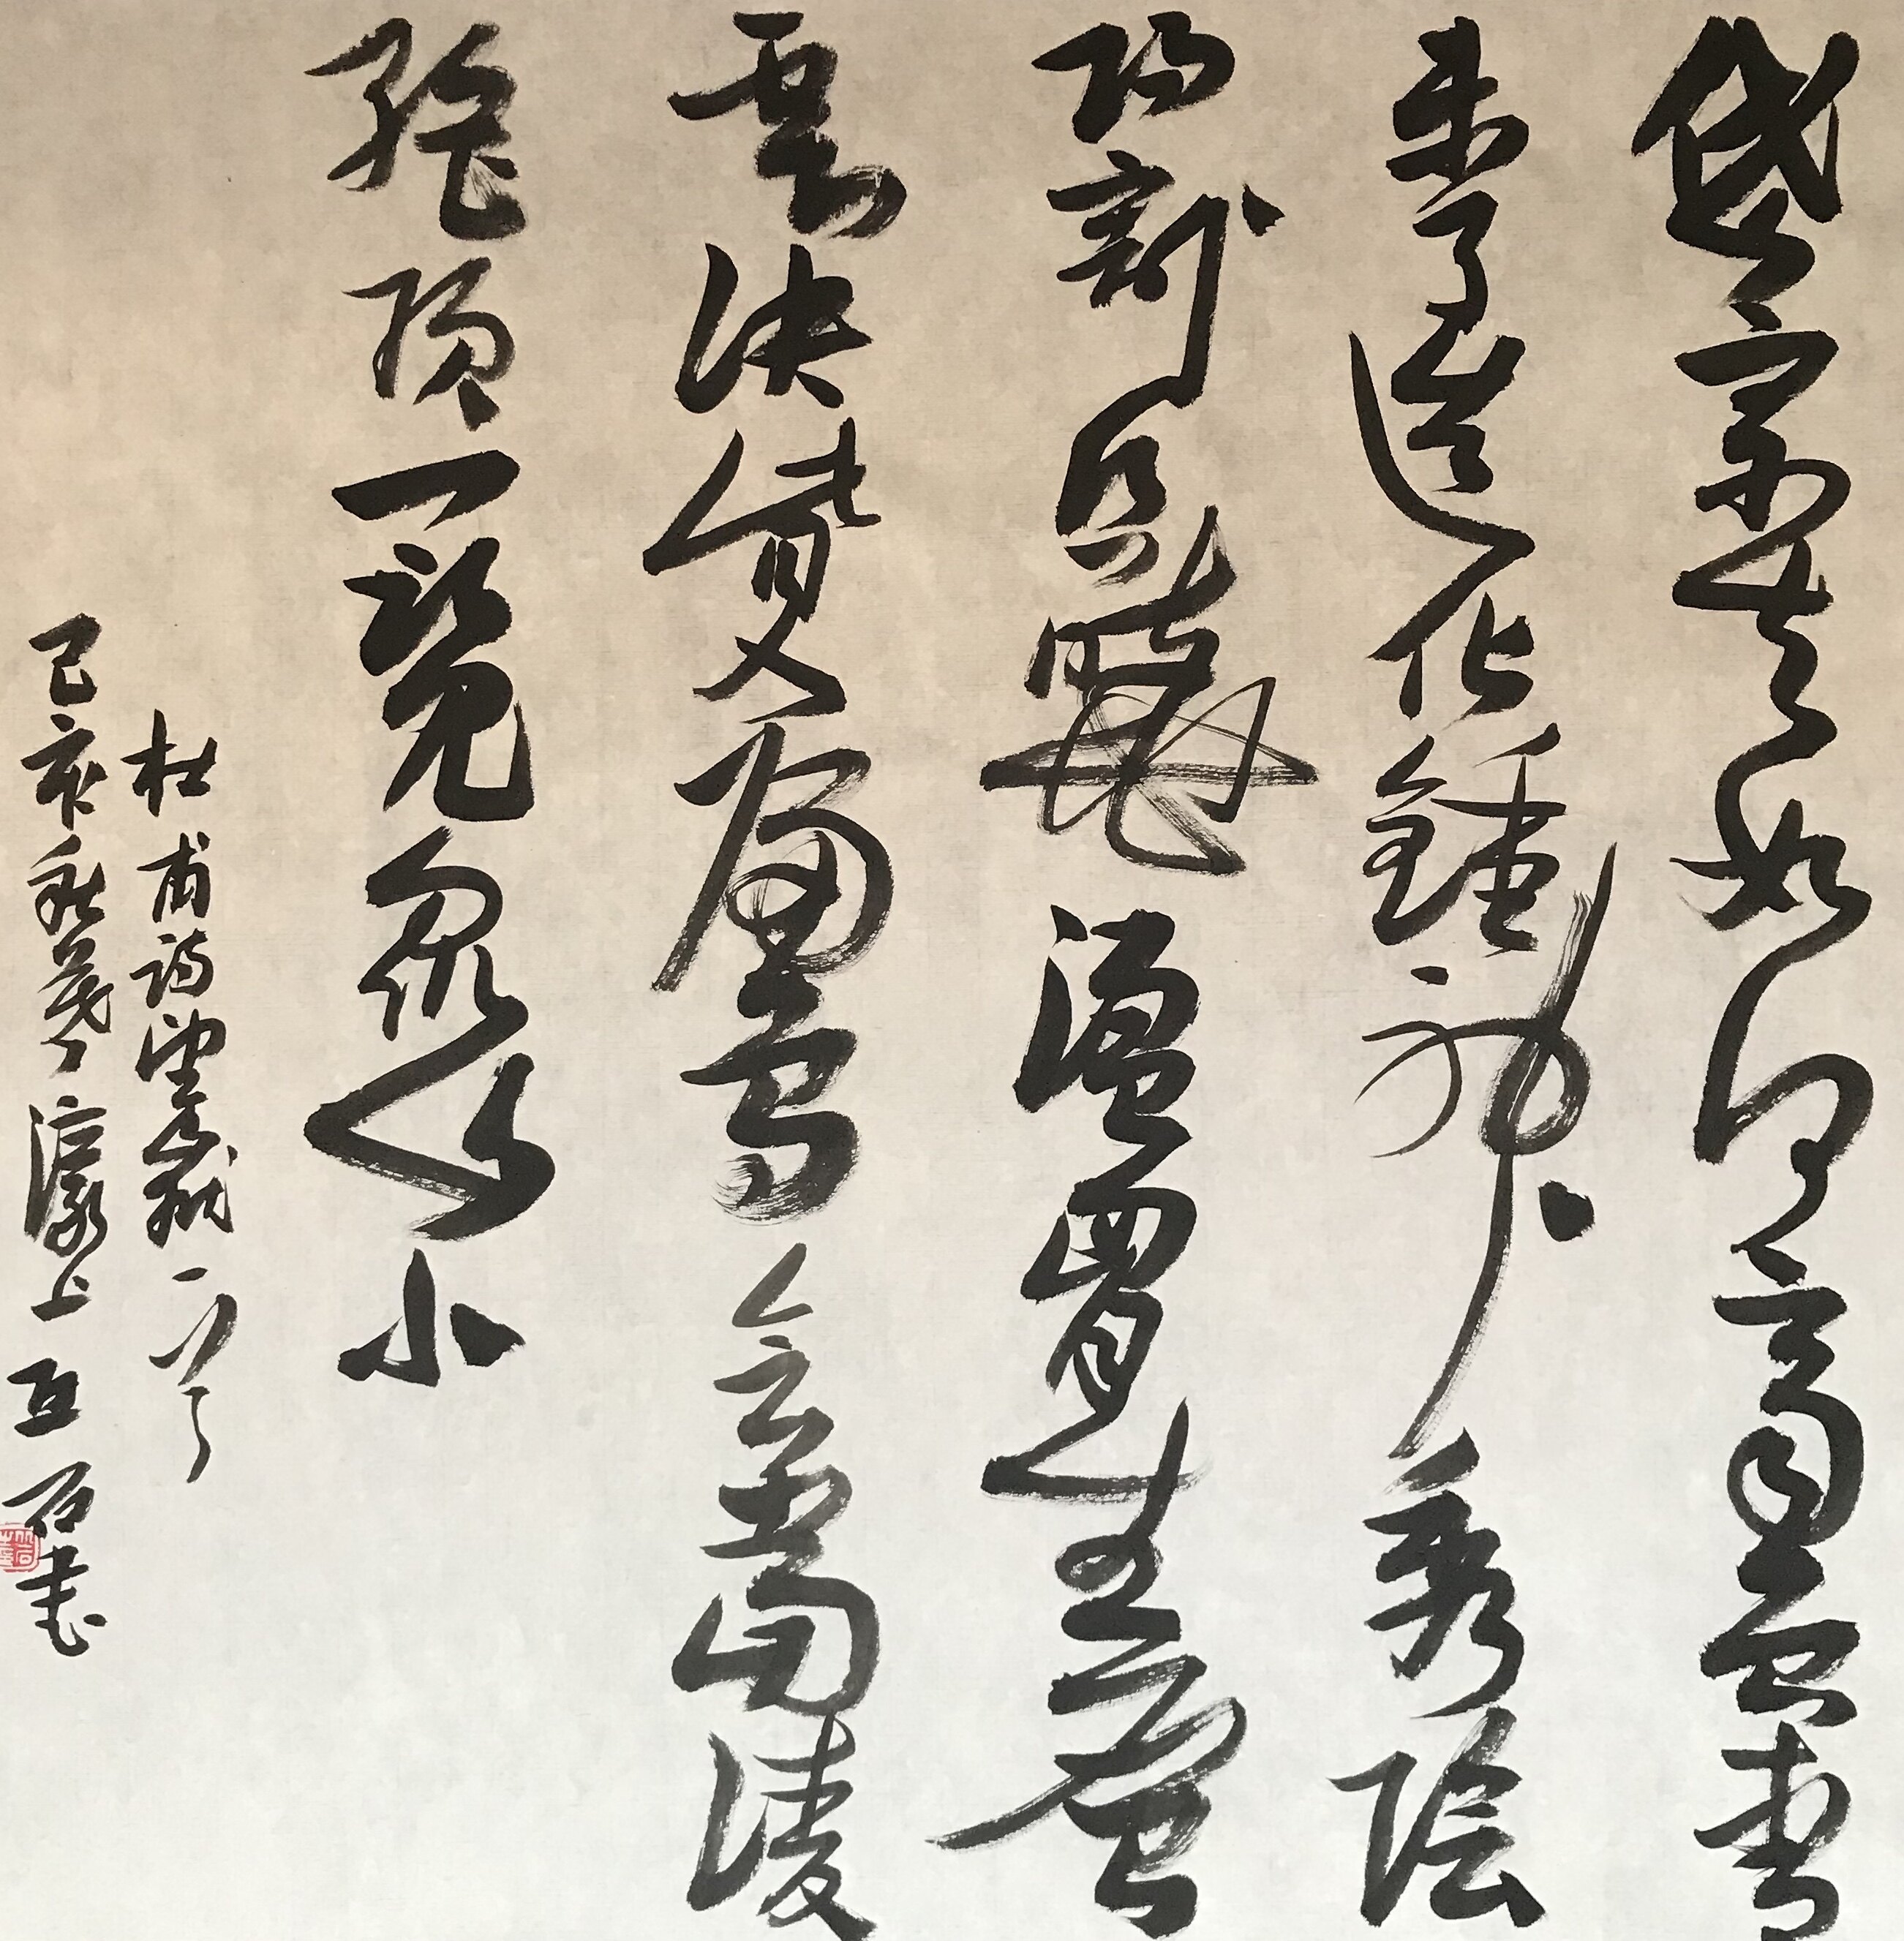 岱宗夫如何齊魯青
未了造化鍾神秀陰
陽割昏曉盪胸生層
雲決眥入歸鳥會當凌
絕頂一覽眾山小
杜甫詩望嶽一首
己亥秋暮上石書